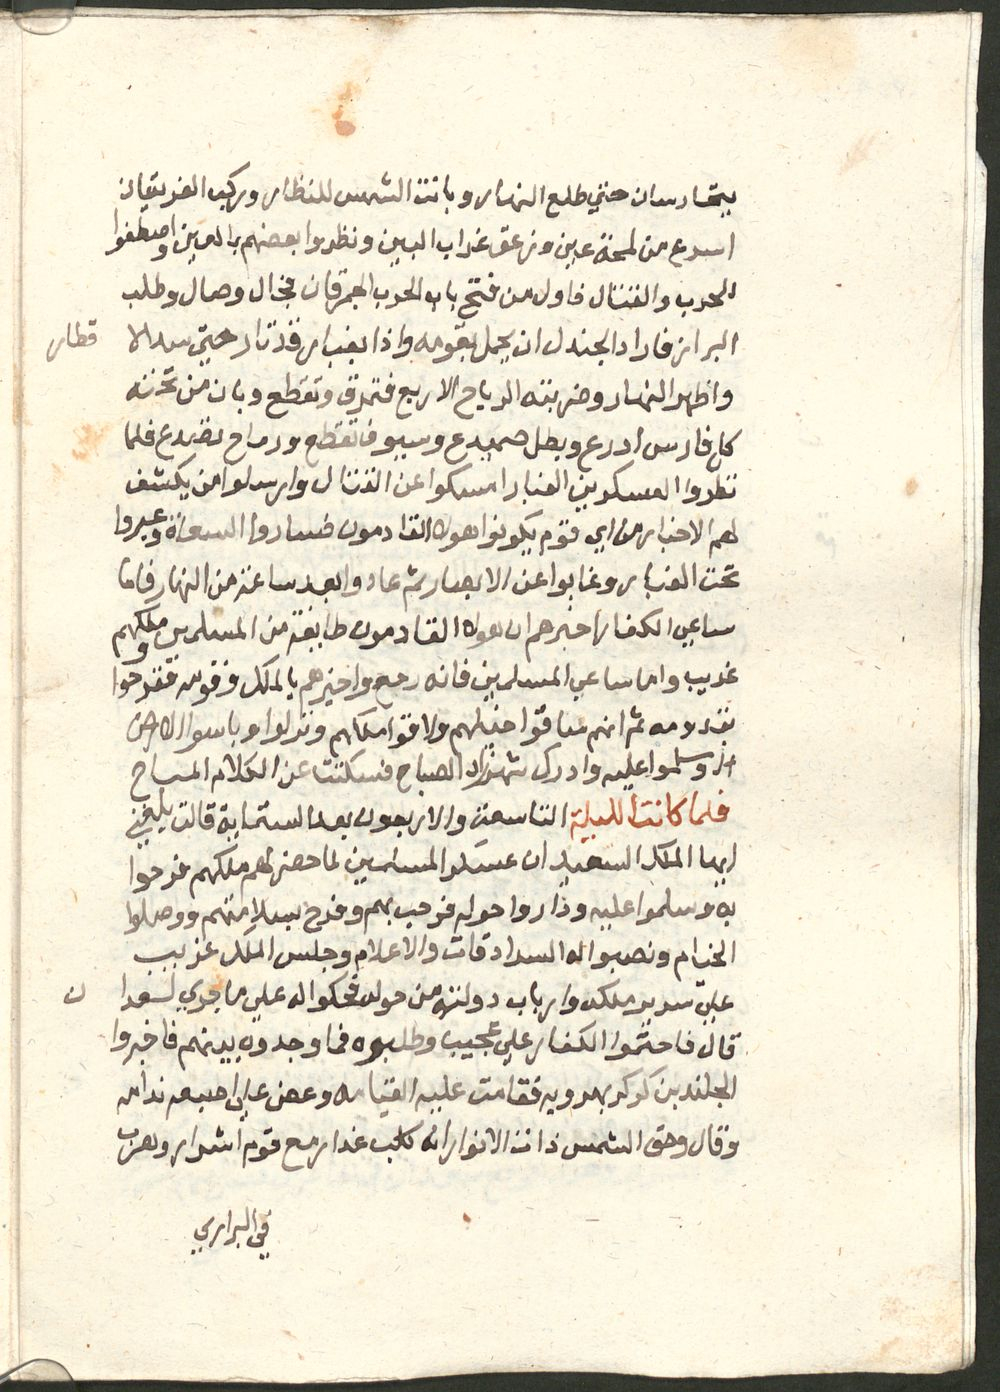 يتحارسان حتي طلع النهار وبانت الشمس للنظار وركب الفريقان
اسرع من لمحة عين وزعق غراب البين ونظروا بعضهم بالعين واصطفوا
للحرب والقتال فاول من فتح باب الحرب الجمرقان فجال وصال وطلب
البراز فاراد الجندل ان يحمل بقومه واذا بغبار قد ثار حتي سد الا قطار
واظهر النهار وضربته الرياح الاربع فتمزق وتقطع وبان من تحته
كل فارس ادرع وبطل صميدع وسيوف تقطع ورماح تصدع فلما
نظروا العسكرين الغبار امسكوا عن القتال وارسلوا من يكشف
لهم الاخبار من اي قوم يكونوا هولا القادمون فساروا السعاة وعبروا
تحت الغبار وغابوا عن الابصار ثم عادوا بعد ساعة من النهار فاما
ساعي الكفار اخبرهم ان هولا القادمون طايفة من المسلمين وملكهم
غريب واما ساعي المسلمين فانه رجع واخبرهم بالملك وقومه ففرحوا
بقدومه ثم انهم ساقوا خيلهم ولاقوا ملكهم ونزلوا وباسوا الارض
وسلموا عليه وادرك شهرزاد الصباح فسكتت عن الكلام المباح
فلما كانت الليلة التاسعة والاربعون بعد الستماية قالت بلغني
ايها الملك السعيد ان عسكر المسلمين لما حضر لهم ملكهم فرحوا
به وسلموا عليه وداروا حوله فرحب بهم وفرح بسلامتهم ووصلوا
الخيام ونصبوا له السرادقات والاعلام وجلس الملك غريب
علي سرير ملكه وارباب دولته من حوله فحكوا له علي ما جري لسعدا ن
قال فاحتموا الكفار علي عجيب وطلبوه فما وجدوه بينهم فاخبروا
الجلند بن كركر بهروبه فقامت عليه القيامه وعض علي اصبعه ندامه
وقال وحق الشمس ذات الانوار انه كلب غدار مع قوم اشرار وهرب
في البراري